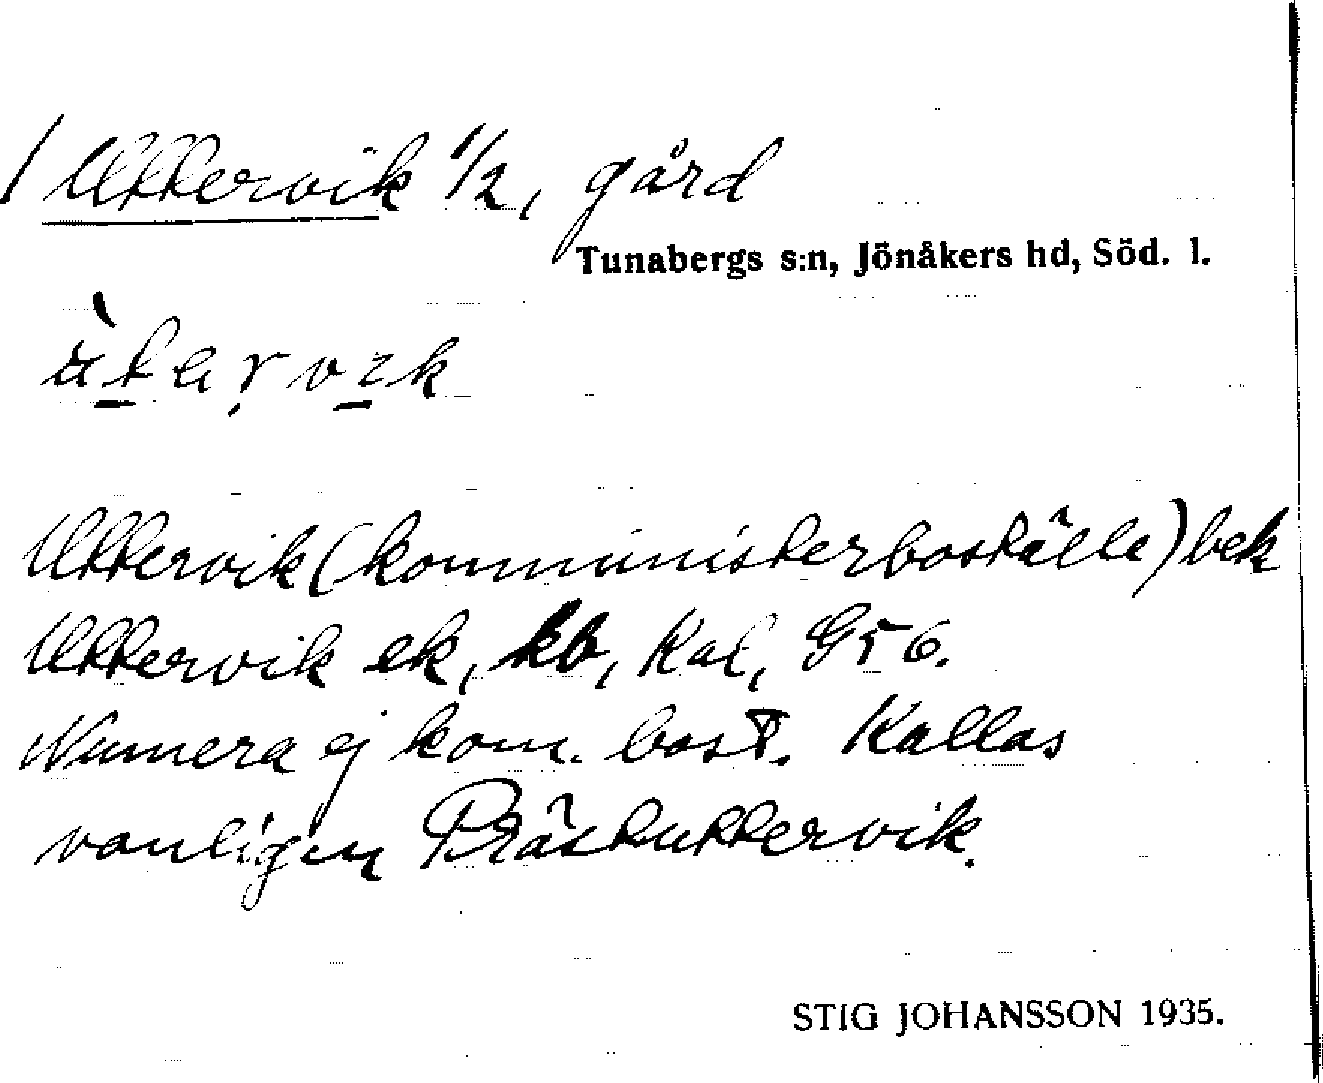 / Uttervik 1/2, gård
Tunabergs s:n, Jönåkers hd, Söd. l.
Uttervik (kommunisterboställe) bek
Uttervik ek, kb, Kal, G56.
Numera ej kom. bost. Kallas
vanligen Prästuttervik.
STIG JOHANSSON 1935.